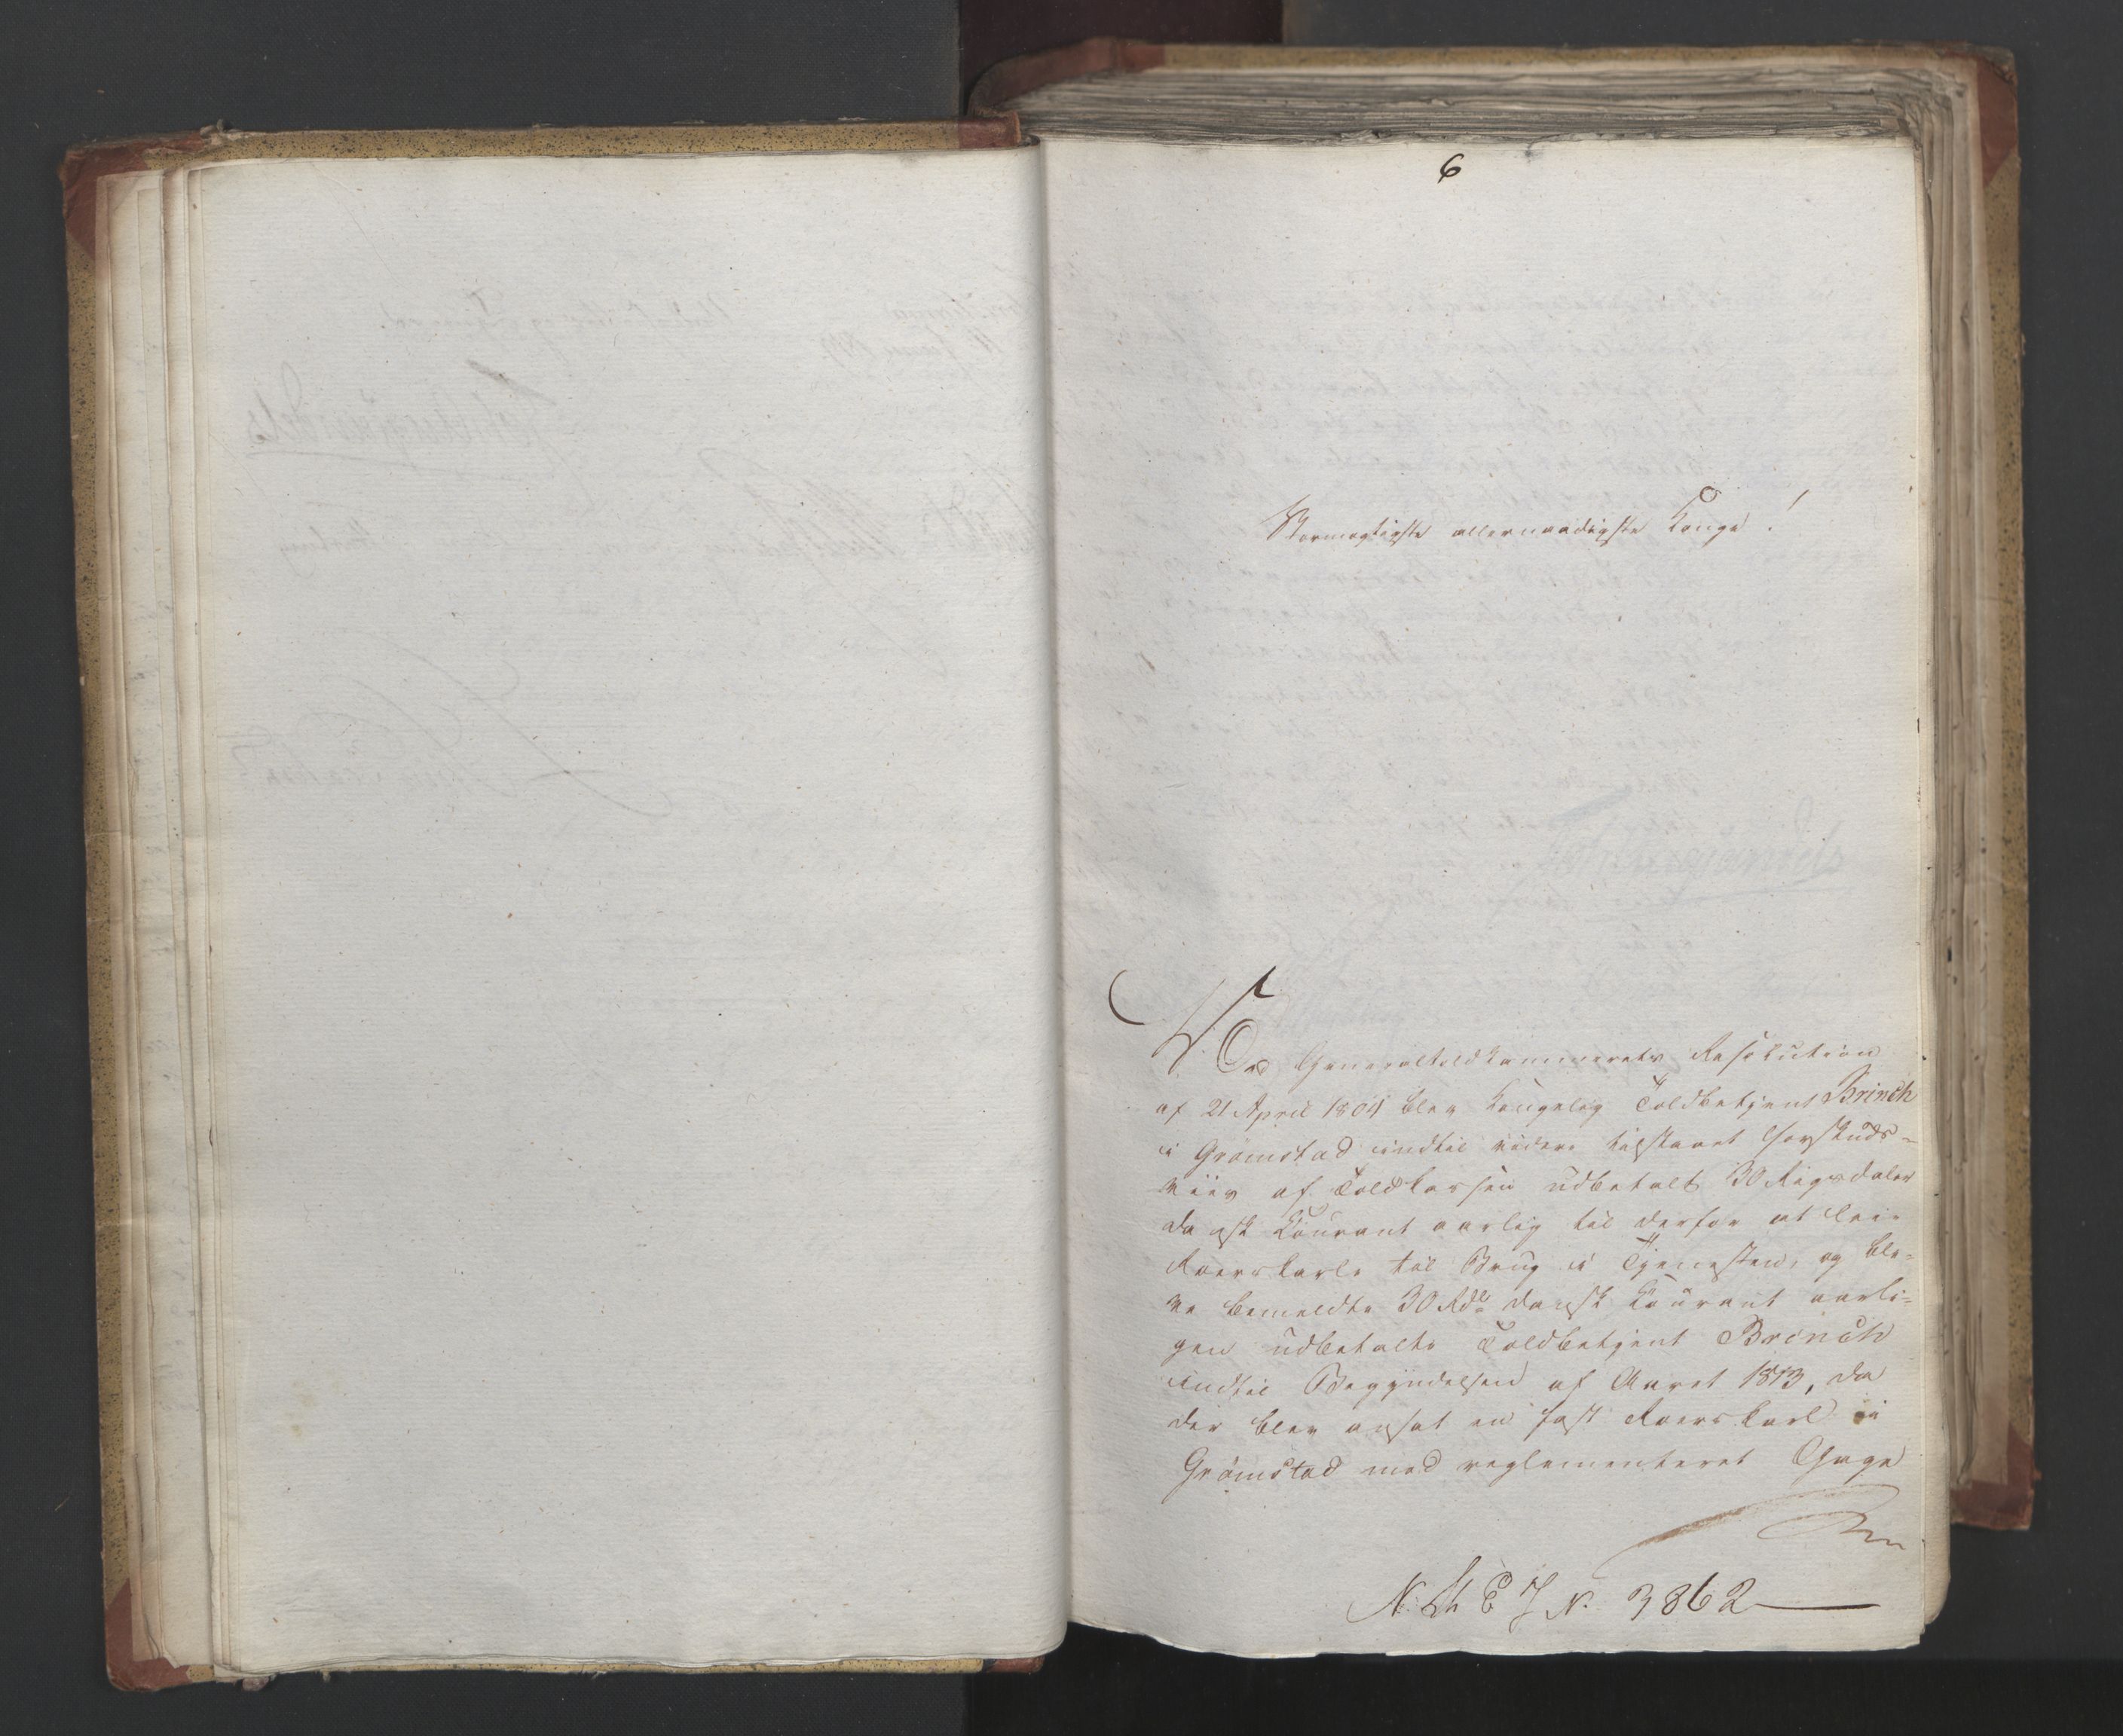 6
Stormægtigste allernaadigste Konge!
Ved Generaltoldkammerets Resolution
af 21 April 1804 blev Kongelig Toldbetjent Brinch
i Grømstad indtil videre tilstaaet Forskuds-
viis af Toldkassen udbetalt 30 Rigsdaler
dansk Courant aarlig til derfor at leie
Roerskarle til Brug i Tjenesten, og ble-
ve bemeldte 30 Rdlr dansk Courant aarli-
gen udbetalte Toldbetjent Brinch
indtil Begyndelsen af Aaret 1813, da
der blev ansat en fast Roerskarl i
Grømstad med reglementeret Gage
N. St E J N. 3862